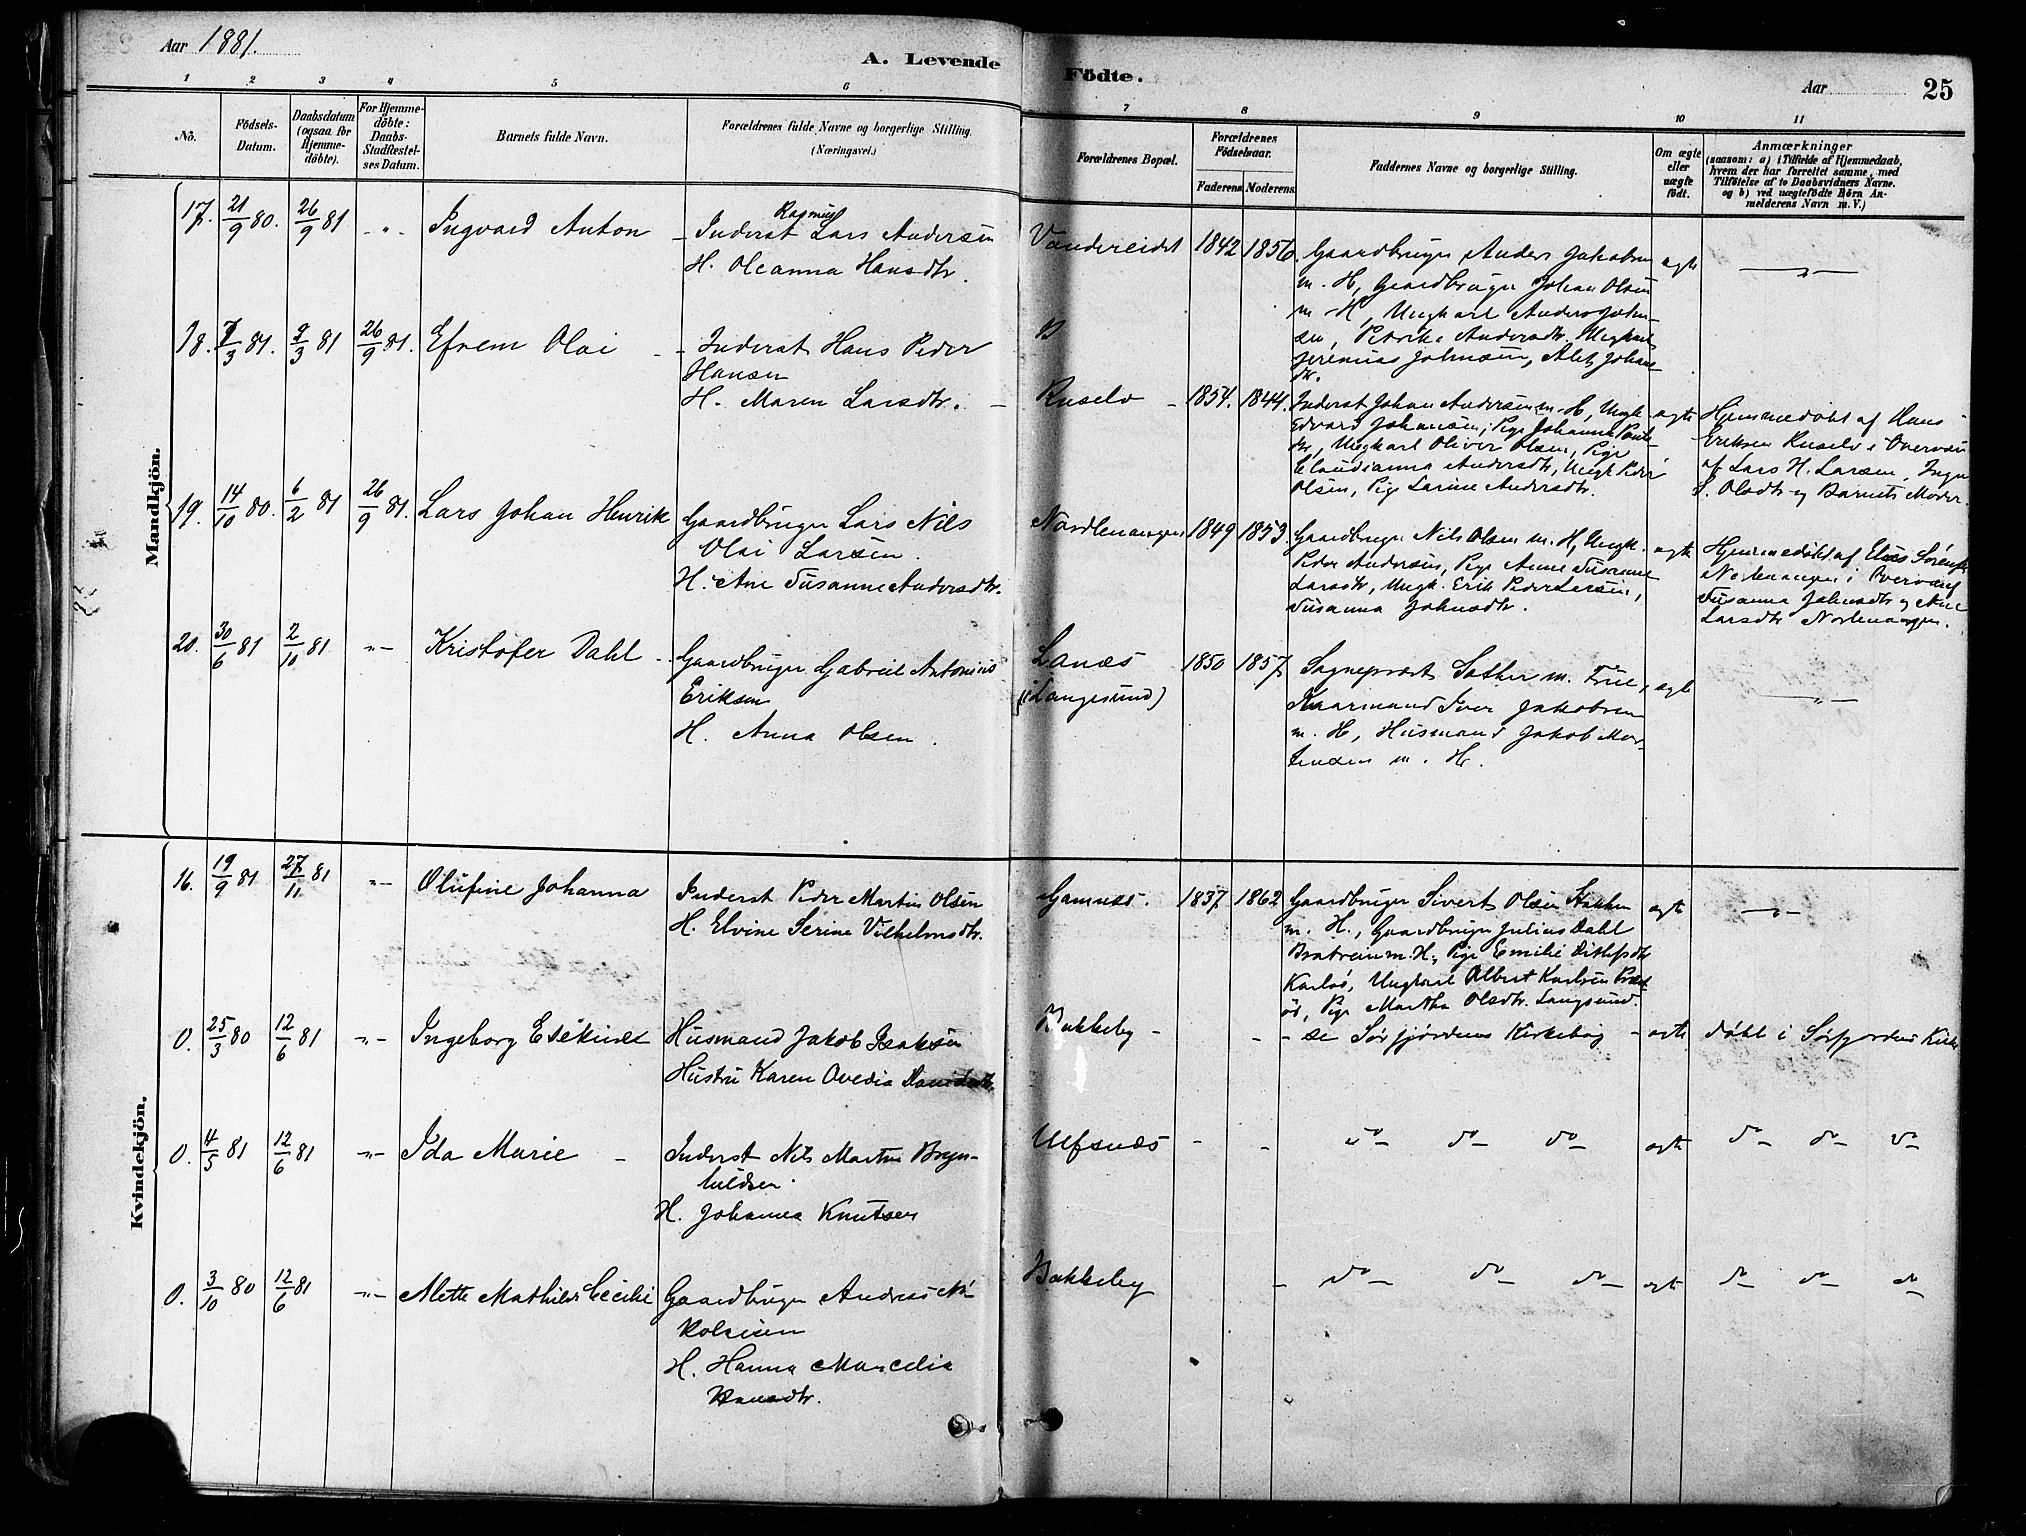 Aar 1881.
A. Levende Födte.
Aar
25
1 2 3 4 5 6 7 8 9 10 11
No.
Födsels-Datum.
Daabsdatum (ogsaa for Hjemmedöbte).
For Hjemmedöbte: Daabs-Stadfæstelses Datum.
Barnets fulde Navn.
Forældrenes fulde Navne og borgerlige Stilling. (Næringsvei.)
Forældrenes Bopæl.
Forældrenes Födselsaar.
Faderens. Moderens.
Faddernes Navne og borgerlige Stilling.
Om ægte eller uægte födt.
Anmærkninger
(saasom: a) i Tilfælde af Hjemmedaab, hvem der har forrettet samme, med Tilföielse af to Daabsvidners Navne. og b) ved uægtefödte Börn Anmelderens Navn m. V.)
Mandkjön.
17. 21/9 80. 26/9 81 -"- Ingvard Anton
Inderst Rasmus Lars Andersen
H. Oleanna Hansdtr.
Vandereidet 1842 1856.
Gaardbruger Anders Jakobsen
m. H, Gaardbruger Johan Olsen
m H, Ungkarl Anders Johnsen,
Petrika Andersdtr, Ungkarl
Jeremias Johnsen, Alet Johansdtr.
ægte -"-
18. 7/3 81. 9/3 81 26/9 81. Efrem Olai
Inderst Hans Peder
Hansen
H. Maren Larsdtr.
Ruselv 1854. 1844.
Inderst Johan Andersen m. H, Ungk.
Edvard Johansen, Pige Johanna
Ungkarl Oliver Olsen, Pige
Claudianna Andersdtr, Ungk Peder
Olsen, Pige Larine Andersdtr.
ægte
Hjemmedöbt af Hans
Eriksen Ruselv i Overvær
af Lars H. Larsen,
Olsdtr og Barnets Moder.
19. 14/10 80. 6/2 81 26/9 81. Lars Johan Henrik
Gaardbruger Lars Nils
Olai Larsen.
H. Ane Susanne Andersdtr.
Nordlenangen 1849 1853.
Gaardbruger Nils Olsen m. H, Ungk.
Peder Andersen, Pige Anne Susanne
Larsdtr, Ungk. Erik Peder Larsen,
Susanna Johnsdtr.
ægte
Hjemmedöbt af Elias Sörensen
Nordlenangen i Overvær af
Susanna Johnsdtr og Ane
Larsdtr Nordlenangen.
20. 30/6 81 2/10 81 -"- Kristofer Dahl
Gaardbruger Gabriel Antonius
Eriksen
H. Anna Olsen.
Lanæs
(Langesund)
1850 1857
Sognepræst Sæther m. Frue,
Iver Jakobsen
m. H, Husmand Jakob Mortensen
m. H.
ægte -"-
Kvindekjön.
16. 19/9 81 27/11 81 -"- Olufine Johanna
Inderst Peder Martin Olsen
H. Elvine Serine Vilhelmsdtr.
Gamnæs. 1837 1862
Gaardbruger Sivert Olsen
m. H., Gaardbruger Julius Dahl
m. H., Pige Emilie Ditlefsdtr
Karlsö, Ungkarl Albert Karlsen
Pige Martha Olsdtr. Langsund.
ægte -"-
0. 25/3 80 12/6 81 -"- Ingeborg Esekine
Husmand Jakob Isaksen
Hustru Karen Ovedia
Bakkeby - - -
se Sörfjordens Kirkebog - ægte döbt i Sörfjordens Kirke
0. 4/5 81 12/6 81 -"- Ida Marie
Inderst Nils Martin Brynhildsen.
H. Johanna Knutsen
Ulfsnæs - - do do do ægte do do do
0. 3/10 80 12/6 81 -"- Mette Mathilde Cecilie
Gaardbruger Andreas
H. Hanna Marcelia
Hansdtr.
Bakkeby - do do do ægte do do do